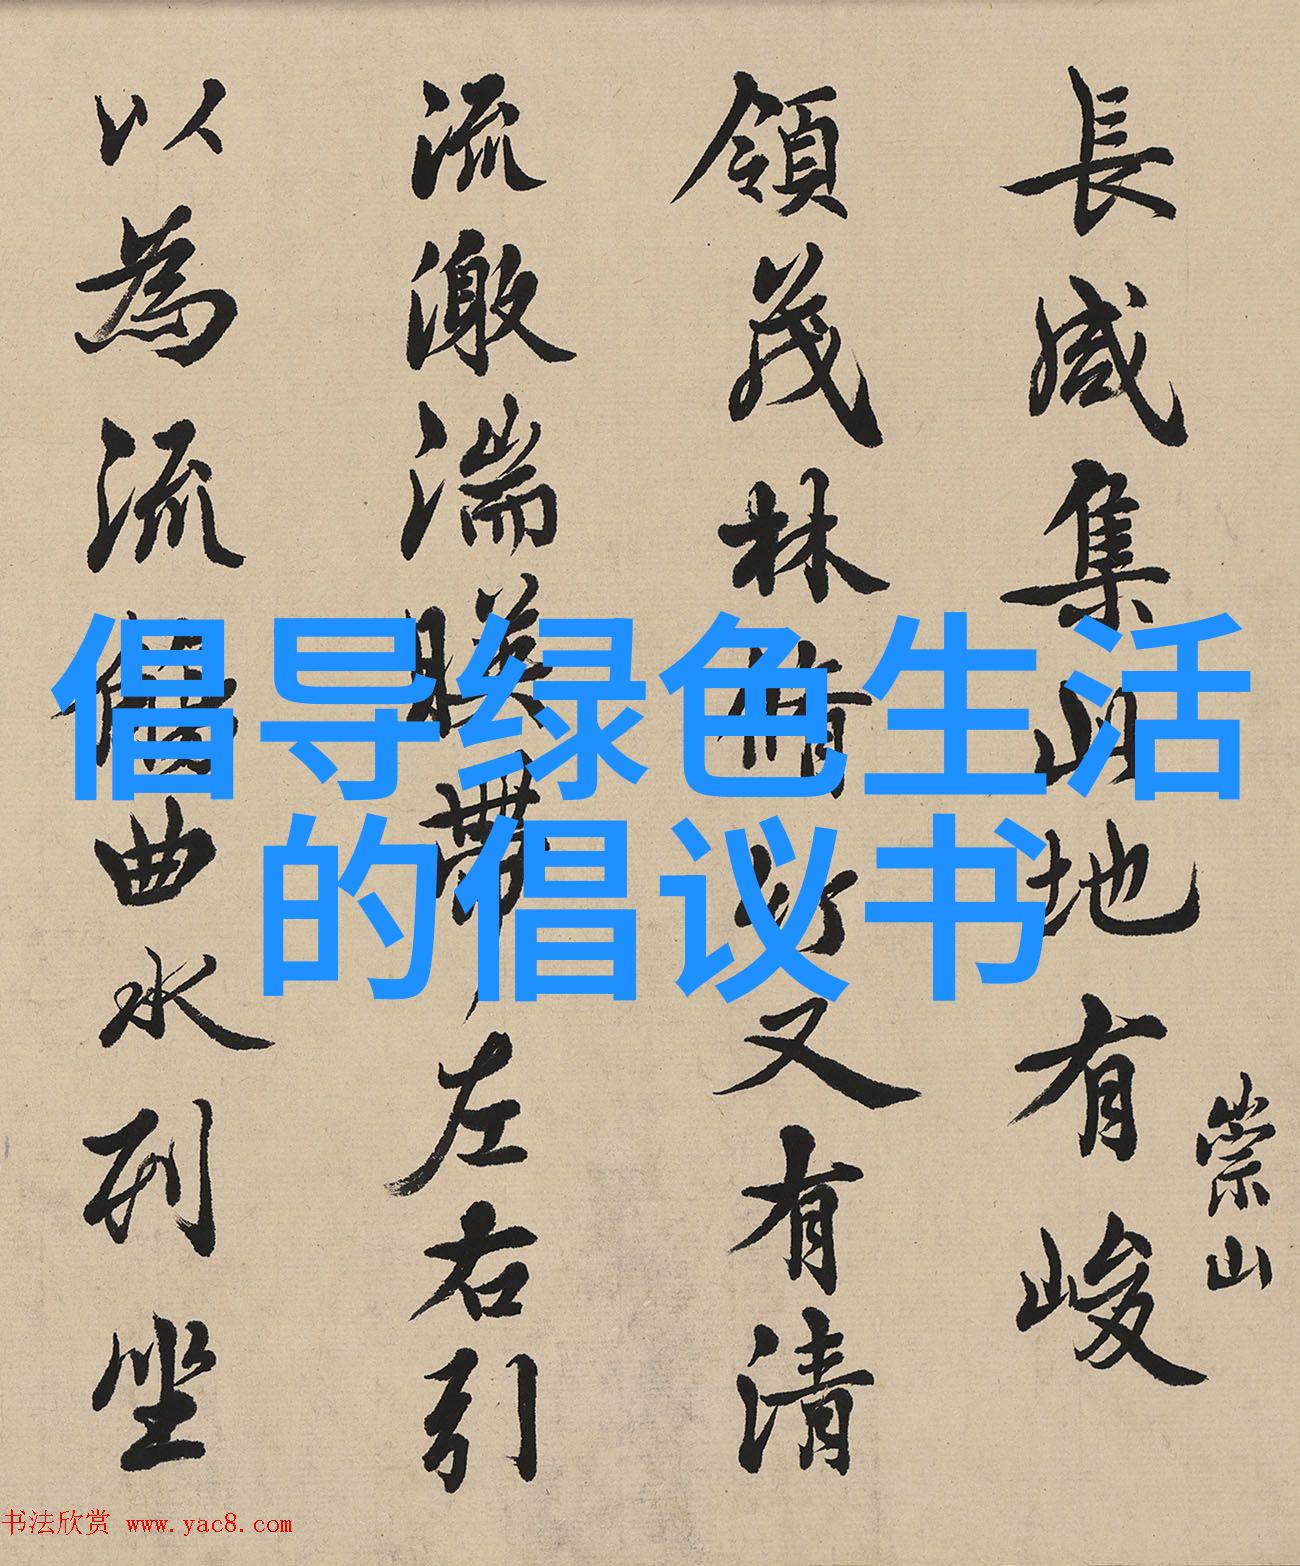 長咸集此地有峻
崇山
領茂林脩竹又有清
流激湍暎帶左右引
以為流觴曲水列坐
倡导绿色生活
的倡议书
书法欣赏 www.yac8.com